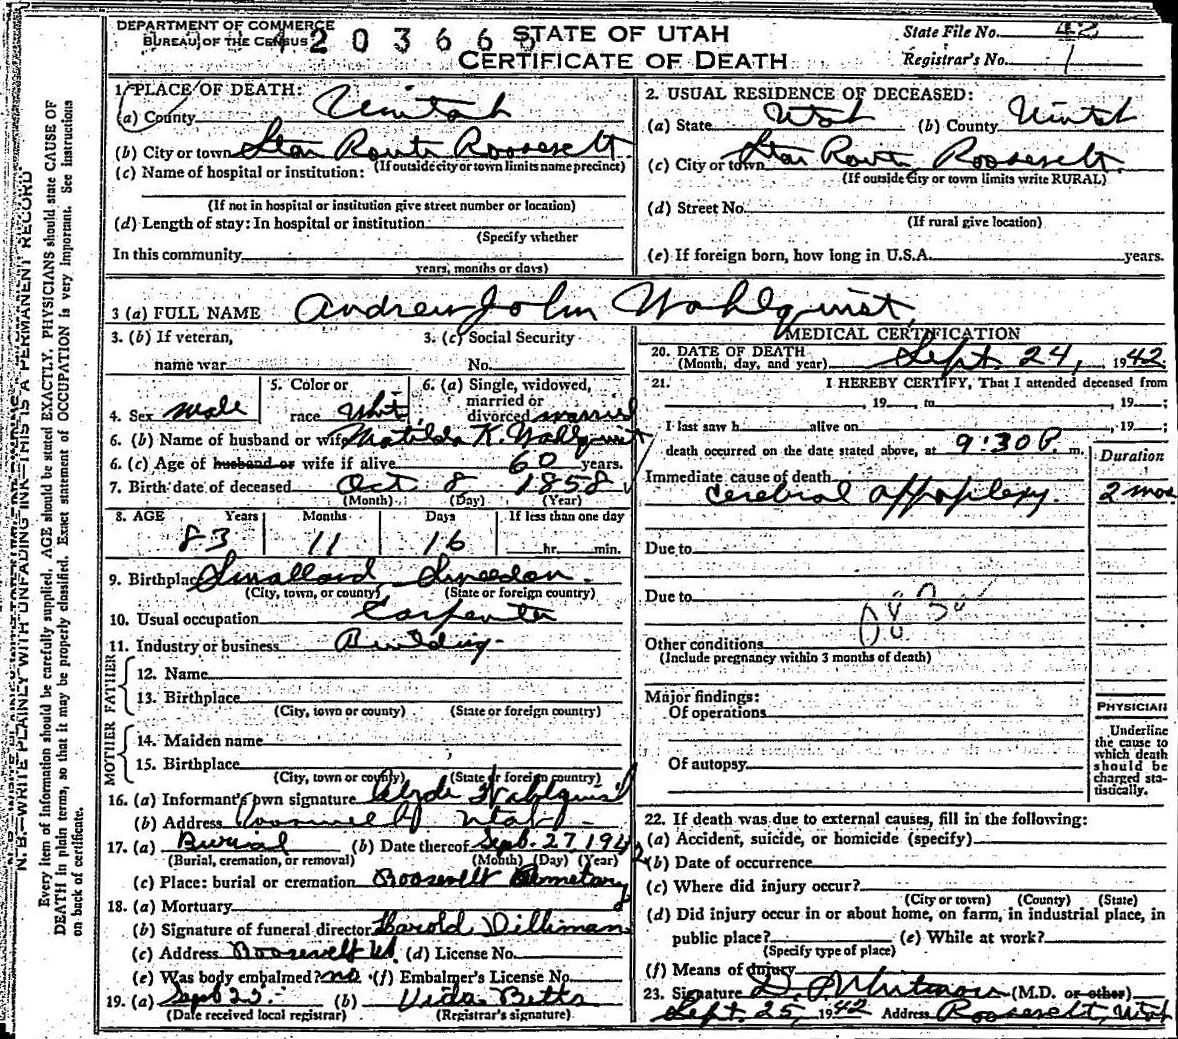 DEPARTMENT OF COMMERCE
BUREAU OF THE CENSUS
STATE OF UTAH
CERTIFICATE OF DEATH
State File No. 42
Registrar's No. 1
1. PLACE OF DEATH:
(a) County Uintah
(b) City or town Star Route Roosevelt
(If outside city or town limits name precinct)
(c) Name of hospital or institution:
(If not in hospital or institution give street number or location)
(d) Length of stay: In hospital or institution
(Specify whether
In this community
years, months or days)
2. USUAL RESIDENCE OF DECEASED:
(a) State Utah (b) County Uintah
(c) City or town Star Route Roosevelt
(If outside city or town limits write RURAL)
(d) Street No.
(If rural give location)
(e) If foreign born, how long in U.S.A. years.
3 (a) FULL NAME Andrew John Wahlquist
3. (b) If veteran,
name war
3. (c) Social Security
No.
4. Sex male
5. Color or
race Whit
6. (a) Single, widowed,
married or
divorced married
6. (b) Name of husband or wife Matilda K. Wahlquist
6. (c) Age of husband or wife if alive 60 years.
7. Birth date of deceased Oct 8 1858
(Month) (Day) (Year)
8. AGE Years Months Days If less than one day
83 11 16 hr. min.
9. Birthplace Smalland, Sweden.
(City, town, or county) (State or foreign country)
10. Usual occupation Carpenter
11. Industry or business Building
FATHER
12. Name
13. Birthplace
(City, town or county) (State or foreign country)
MOTHER
14. Maiden name
15. Birthplace
(City, town or county) (State or foreign country)
16. (a) Informant's own signature Clyde Wahlquist
(b) Address Roosevelt Utah
17. (a) Burial (b) Date thereof Sept. 27, 1942
(Burial, cremation, or removal) (Month) (Day) (Year)
(c) Place: burial or cremation Roosevelt Cemetary
18. (a) Mortuary
(b) Signature of funeral director Harold Dilliman
(c) Address Roosevelt Ut. (d) License No.
(e) Was body embalmed? no (f) Embalmer's License No.
19. (a) Sept 25 (b) Vida Betts
(Date received local registrar) (Registrar's signature)
MEDICAL CERTIFICATION
20. DATE OF DEATH
(Month, day, and year) Sept. 24, 1942
21. I HEREBY CERTIFY, That I attended deceased from
, 19 , to , 19 ;
I last saw h alive on , 19 ;
death occurred on the date stated above, at 9:30 P. m.
Duration
Immediate cause of death
cerebral appoplexy. 2 mos
Due to
Due to
Other conditions
(Include pregnancy within 3 months of death)
Major findings:
Of operations
Of autopsy
PHYSICIAN
Underline
the cause to
which death
should be
charged sta-
tistically.
22. If death was due to external causes, fill in the following:
(a) Accident, suicide, or homicide (specify)
(b) Date of occurrence
(c) Where did injury occur?
(City or town) (County) (State)
(d) Did injury occur in or about home, on farm, in industrial place, in
public place? (e) While at work?
(Specify type of place)
(f) Means of injury
23. Signature D. P. Whitmore (M.D. or other)
Sept. 25, 1942 Address Roosevelt, Utah
N. B.—WRITE PLAINLY WITH UNFADING INK—THIS IS A PERMANENT RECORD
Every item of information should be carefully supplied. AGE should be stated EXACTLY. PHYSICIANS should state CAUSE OF
DEATH in plain terms, so that it may be properly classified. Exact statement of OCCUPATION is very important. See instructions
on back of certificate.